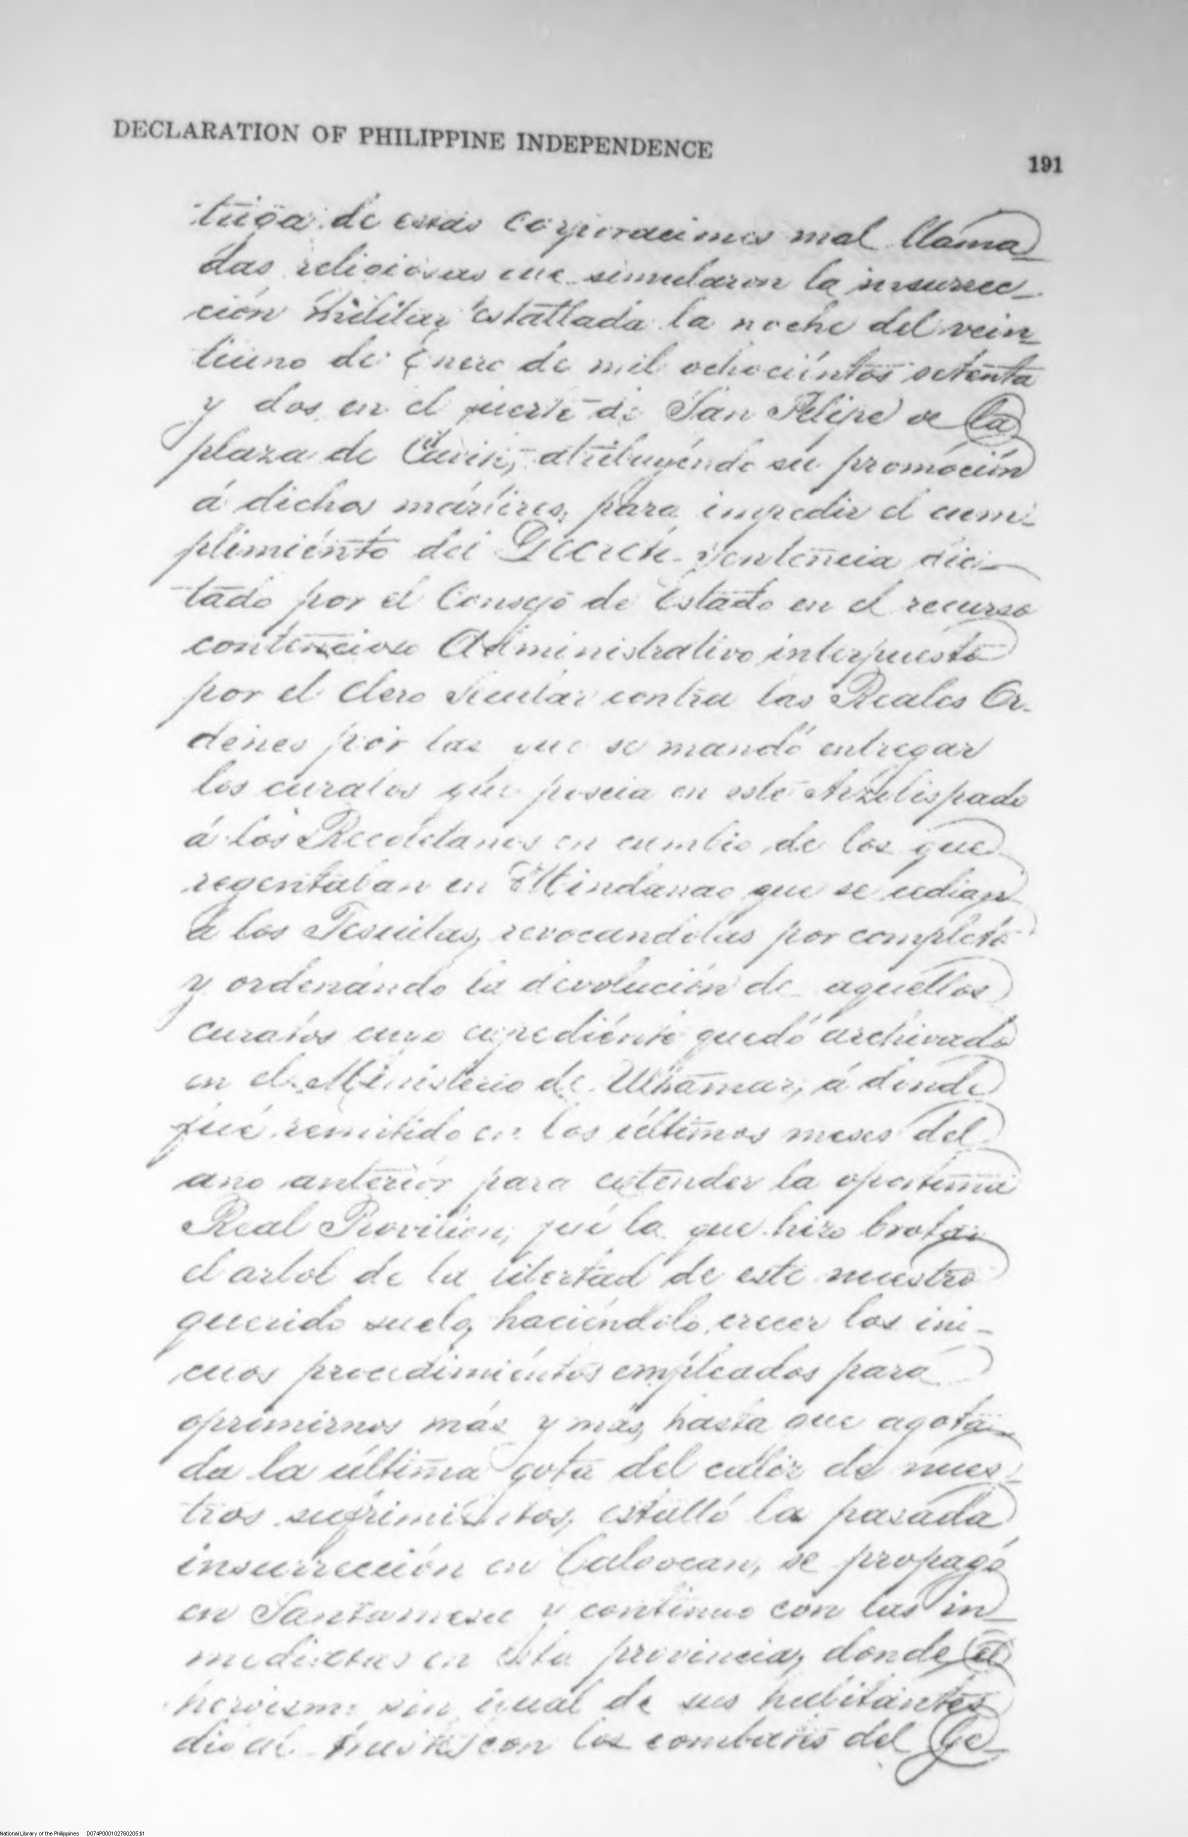 DECLARATION OF PHILIPPINE INDEPENDENCE
191
triga de esas Corporaciones mal llama
das religiosas que simularon la insurrec-
ción Militar estallada la noche del vein
tiuno de Enero de mil ochociéntos setenta
y dos en el fuerte de San Felipe de la
plaza de Cavite, atribuyéndo su promoción
á dichos mártires, para impedir el cum-
plimiénto del Decreto-sentencia dic-
tado por el Consejo de Estado en el recurso
contencioso Administrativo interpuesto
por el Clero Secular contra las Reales Or-
denes por las que se mandó entregar
los curatos que poseia en este Arzobispado
á los Recoletanos en cambio de los que
regentaban en Mindanao que se cedian
á los Jesuitas, revocandolas por completo
y ordenándo la devolución de aquellos
curatos cuyo expediénte quedó archivado
en el Ministerio de Ultramar, á donde
fué remitido en los últimos meses del
ano anterior para extender la oportuna
Real Provision, fué la que hizo brotar
el arbol de la libertad de este nuestro
querido suelo, haciéndolo crecer los ini-
cuos procedimiéntos empleados para
oprimirnos más y mas, hasta que agota-
da la última gota del caliz de nues-
tros sufrimientos, estalló la pasada
insurrección en Caloocan, se propagó
en Santamesa y continuo con las in-
mediatas en esta provincia, donde el
heroismo sin igual de sus habitantes
dió al traste con los combates del Ge-
National Library of the Philippines